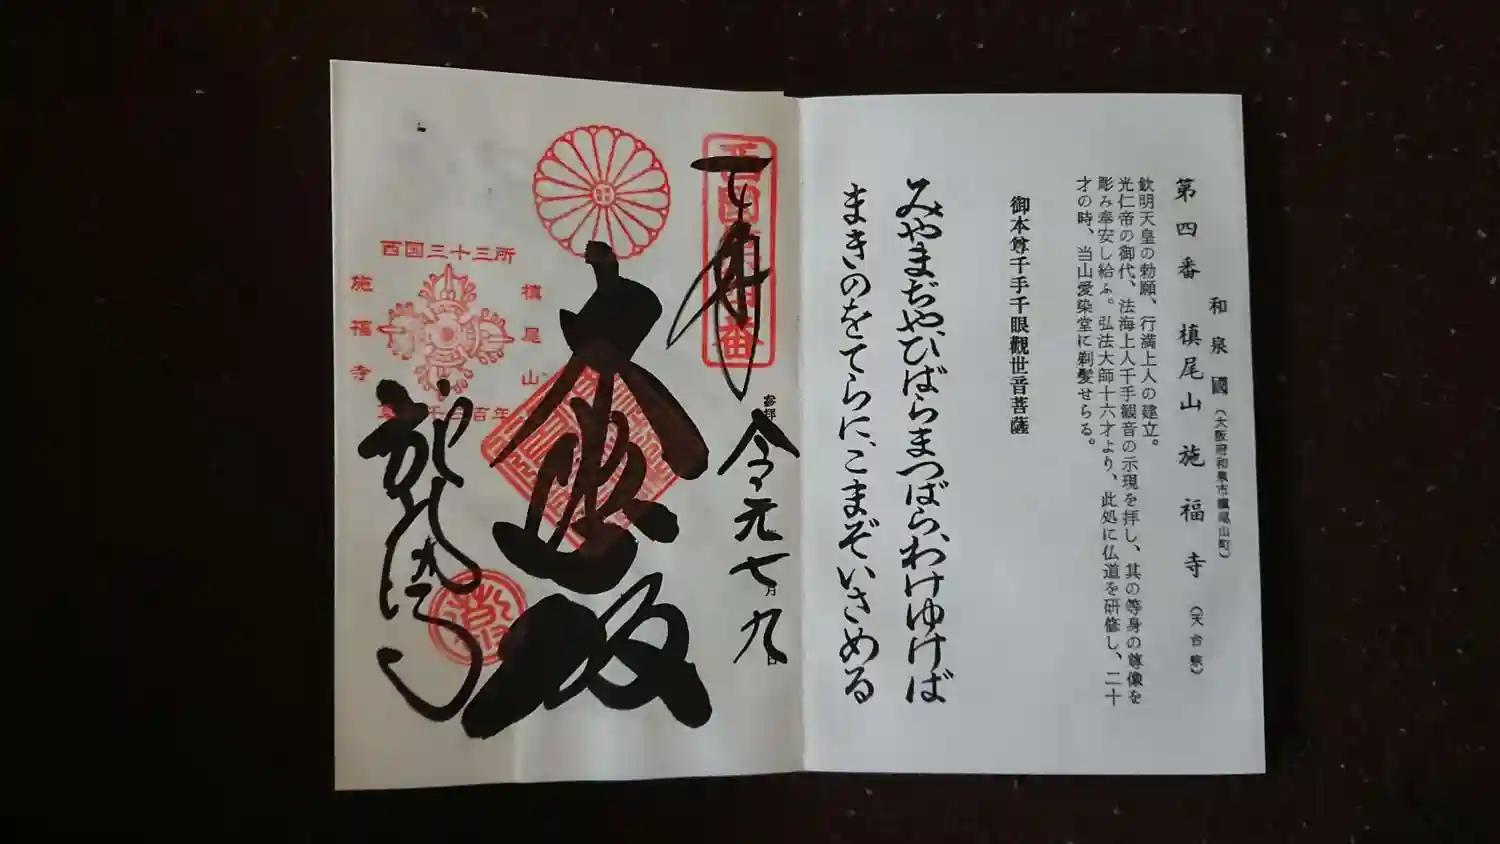 和泉國(大阪府和泉市槇尾山町)
第四番 槇尾山 施福寺(天台宗)
欽明天皇の勅願、行満上人の建立。
光仁帝の御代、法海上人千手観音の示現を拝し、其の等身の尊像を
彫み奉安し給ふ。弘法大師十六才より、此処に仏道を研修し、二十
才の時、当山愛染堂に剃髪せらる。
御本尊千手千眼觀世音菩薩
みやまぢや、ひばらまつばら、わけゆけば
まきのをてらに、こまぞいさめる
西国第四番
奉拝
令元七月九日
大悲殿
西国三十三所
槙尾山
施福寺
草創千三百年
施福寺